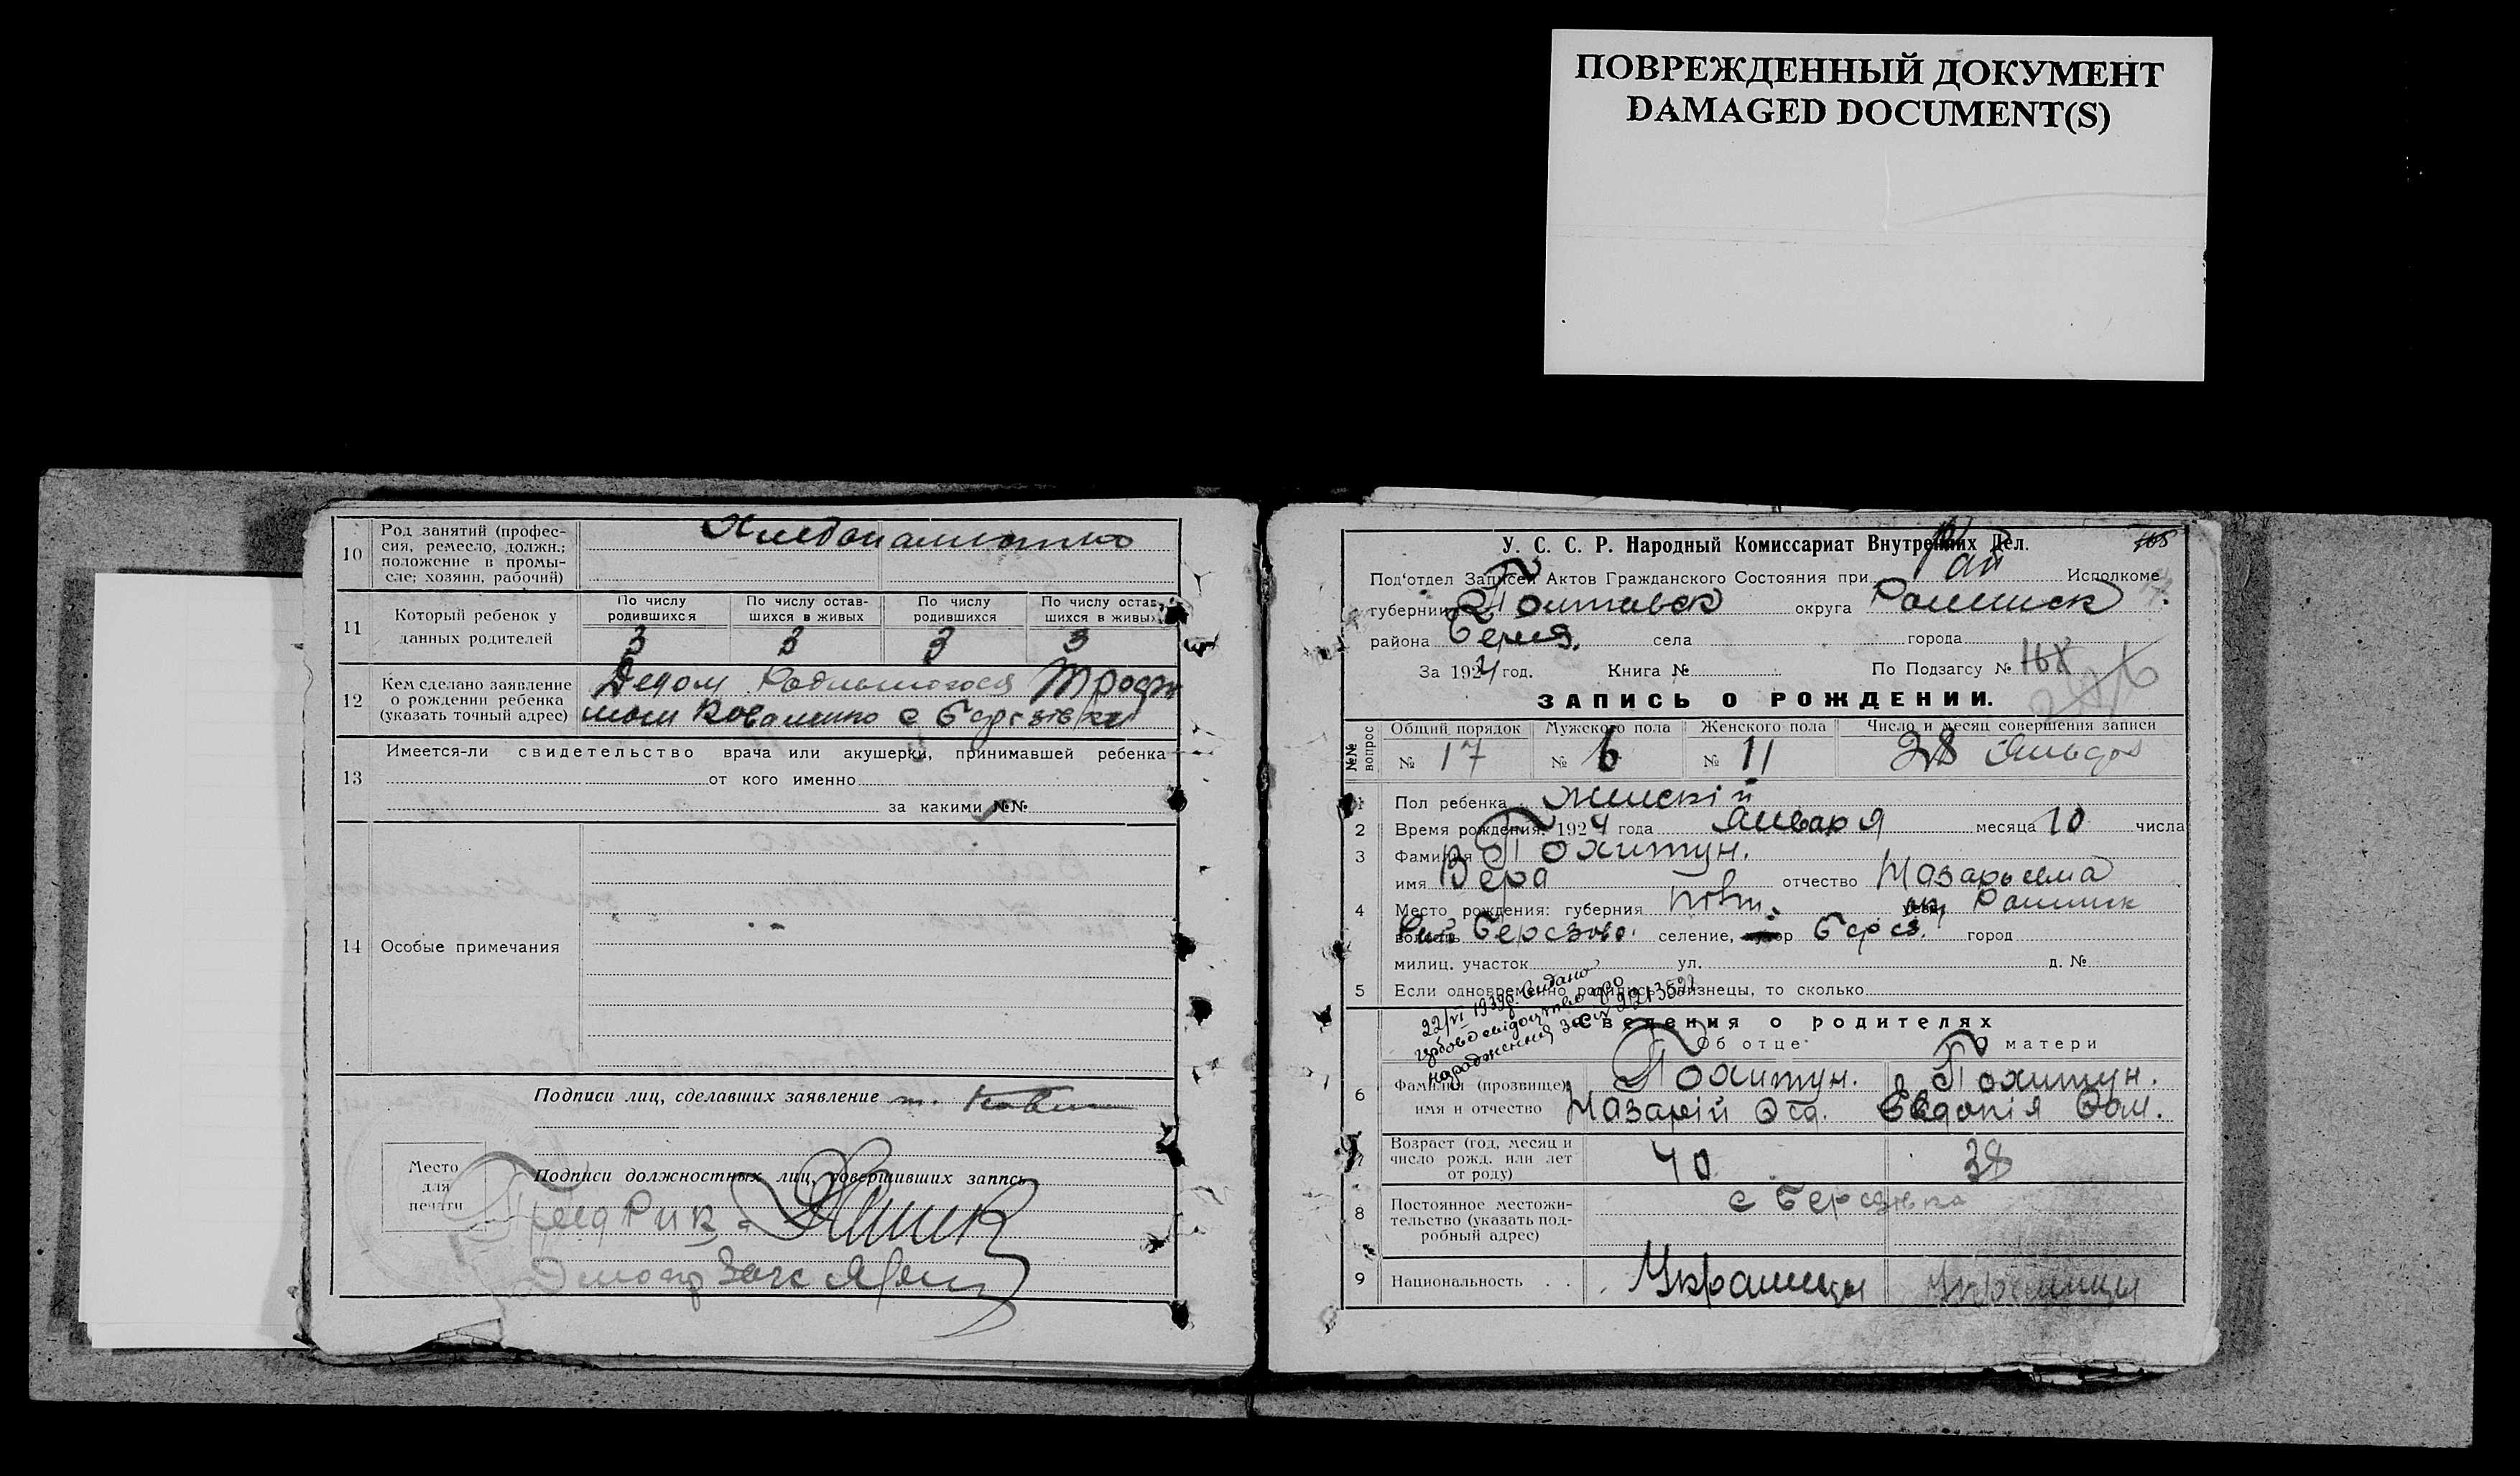 ПОВРЕЖДЕННЫЙ ДОКУМЕНТ
DAMAGED DOCUMENT(S)
10 Род занятий (профес-
сия, ремесло, должн.;
положение в промы-
сле; хозяин, рабочий)
11 Который ребенок у
данных родителей
По числу
родившихся
По числу остав-
шихся в живых
По числу
родившихся
По числу остав-
шихся в живых
3 3 3 3
12 Кем сделано заявление
о рождении ребенка
(указать точный адрес)
Дедом Родившогося Трофи
мом Коваленко с Березівки
13 Имеется-ли свидетельство врача или акушерки, принимавшей ребенка
от кого именно
за какими №№
14 Особые примечания
Подписи лиц, сделавших заявление т.
Место
для
печати
Подписи должностных лиц, совершивших запись
Пред Рик
У. С. С. Р. Народный Комиссариат Внутренних Дел.
168
Под'отдел Записей Актов Гражданского Состояния при Рай Исполкоме
губернии Полтавск округа Роменск
района села города
За 1924 год. Книга № По Подзагсу № 168
ЗАПИСЬ О РОЖДЕНИИ.
№№ вопрос
Общий порядок Мужского пола Женского пола Число и месяц совершения записи
№ 17 № 6 № 11 28 Января
1 Пол ребенка Женскій
2 Время рождения: 1924 года Января месяца 10 числа
3 Фамилия Похитун.
имя Вера отчество Назарьевна
4 Место рождения: губерния Полт. Роменск
Березово. селение, Берез. город
милиц. участок ул. д. №
5 Если одновременно родились близнецы, то сколько
22/VI 1939р. Видано
гербове свідоцтво про
народження за №
Сведения о родителях
Об отце О матери
6 Фамилия (прозвище)
имя и отчество
Похитун. Похитун.
Назарій Евдокія
7 Возраст (год, месяц и
число рожд. или лет
от роду)
40 38
8 Постоянное местожи-
тельство (указать под-
робный адрес)
с Березівка
9 Национальность . . Украинцы Украинцы